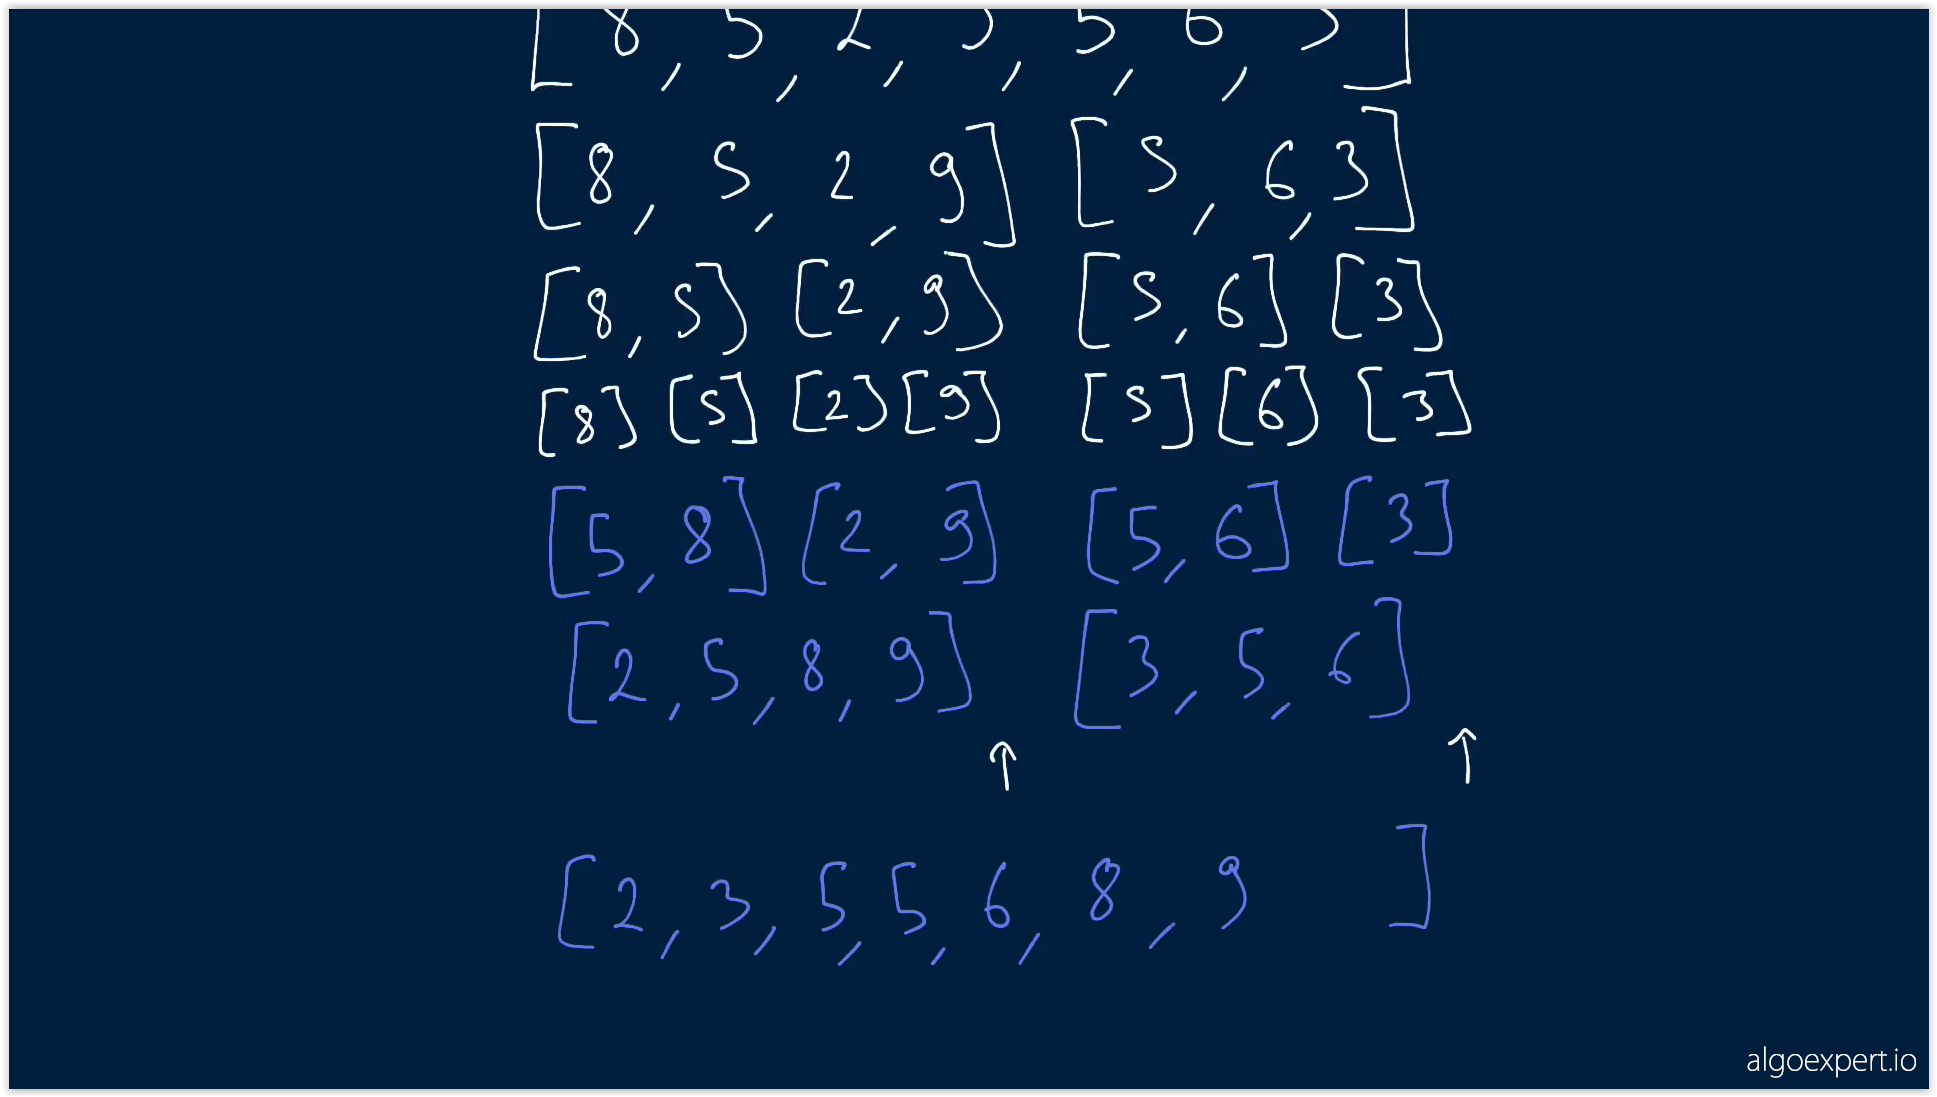 [8, 5, 2, 9, 5, 6, 3]
[8, 5, 2, 9] [5, 6, 3]
[8, 5] [2, 9] [5, 6] [3]
[8] [5] [2] [9] [5] [6] [3]
[5, 8] [2, 9] [5, 6] [3]
[2, 5, 8, 9] [3, 5, 6]
↑ ↑
[2, 3, 5, 5, 6, 8, 9 ]
algoexpert.io